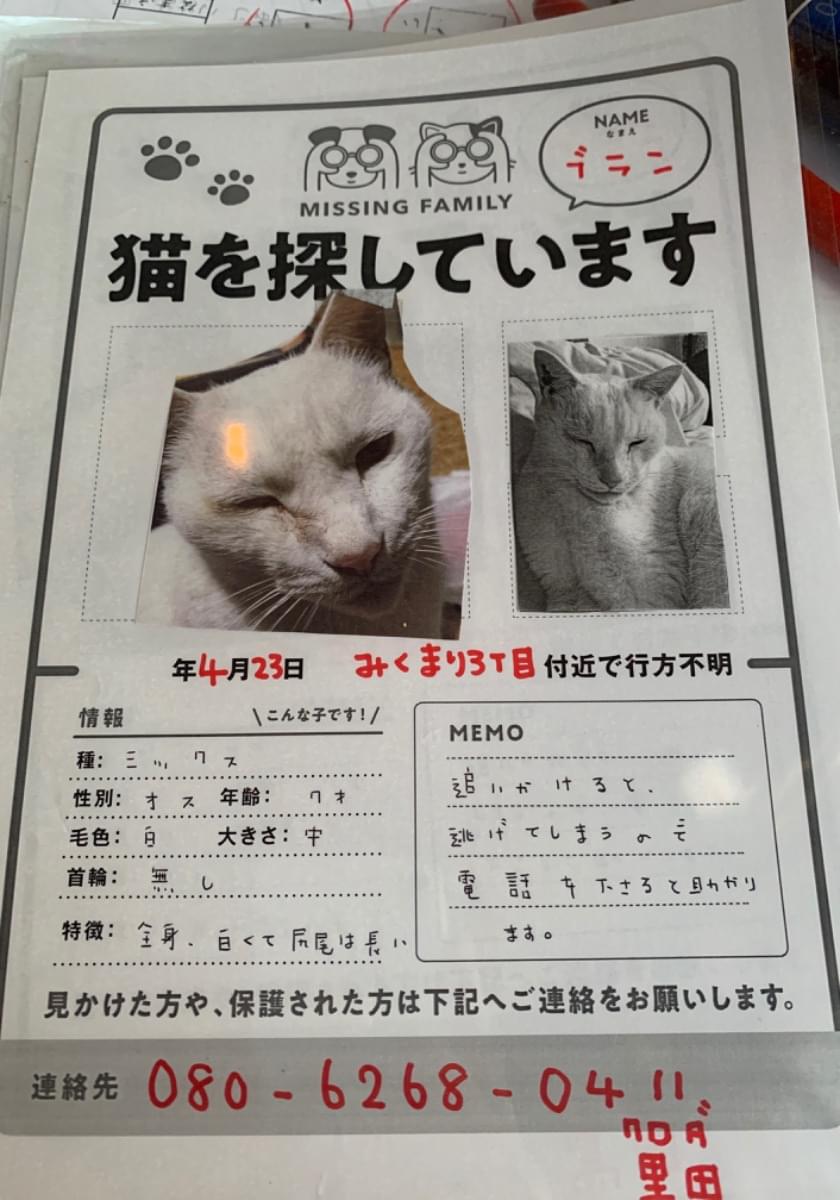 NAME
なまえ
ブラン
MISSING FAMILY
猫を探しています
年4月23日 みくまり3丁目付近で行方不明
情報 \こんな子です!/
種: ミックス
性別: オス 年齢: 7才
毛色: 白 大きさ: 中
首輪: 無し
特徴: 全身、白くて尻尾は長い
MEMO
追いかけると、
逃げてしまうので
電話を下さると助かり
ます。
見かけた方や、保護された方は下記へご連絡をお願いします。
連絡先 080-6268-0411
クロダ
黒田